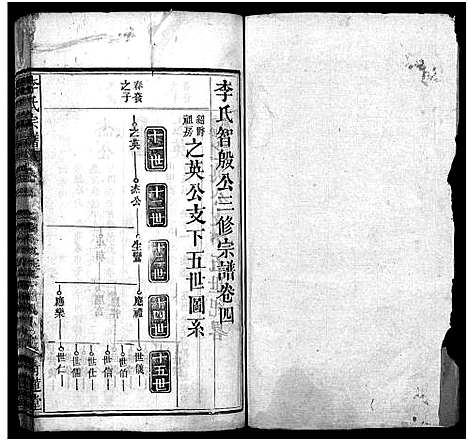 李氏智殷公三修宗譜卷四
紹野
祖房
之英公支下五世圖系
十一世
十二世
十三世
十四世
十五世
春養
之子
之英
杰公
生璧
應禮
世儀
世伯
世信
應樂
世仕
世儒
世仁
李氏宗譜